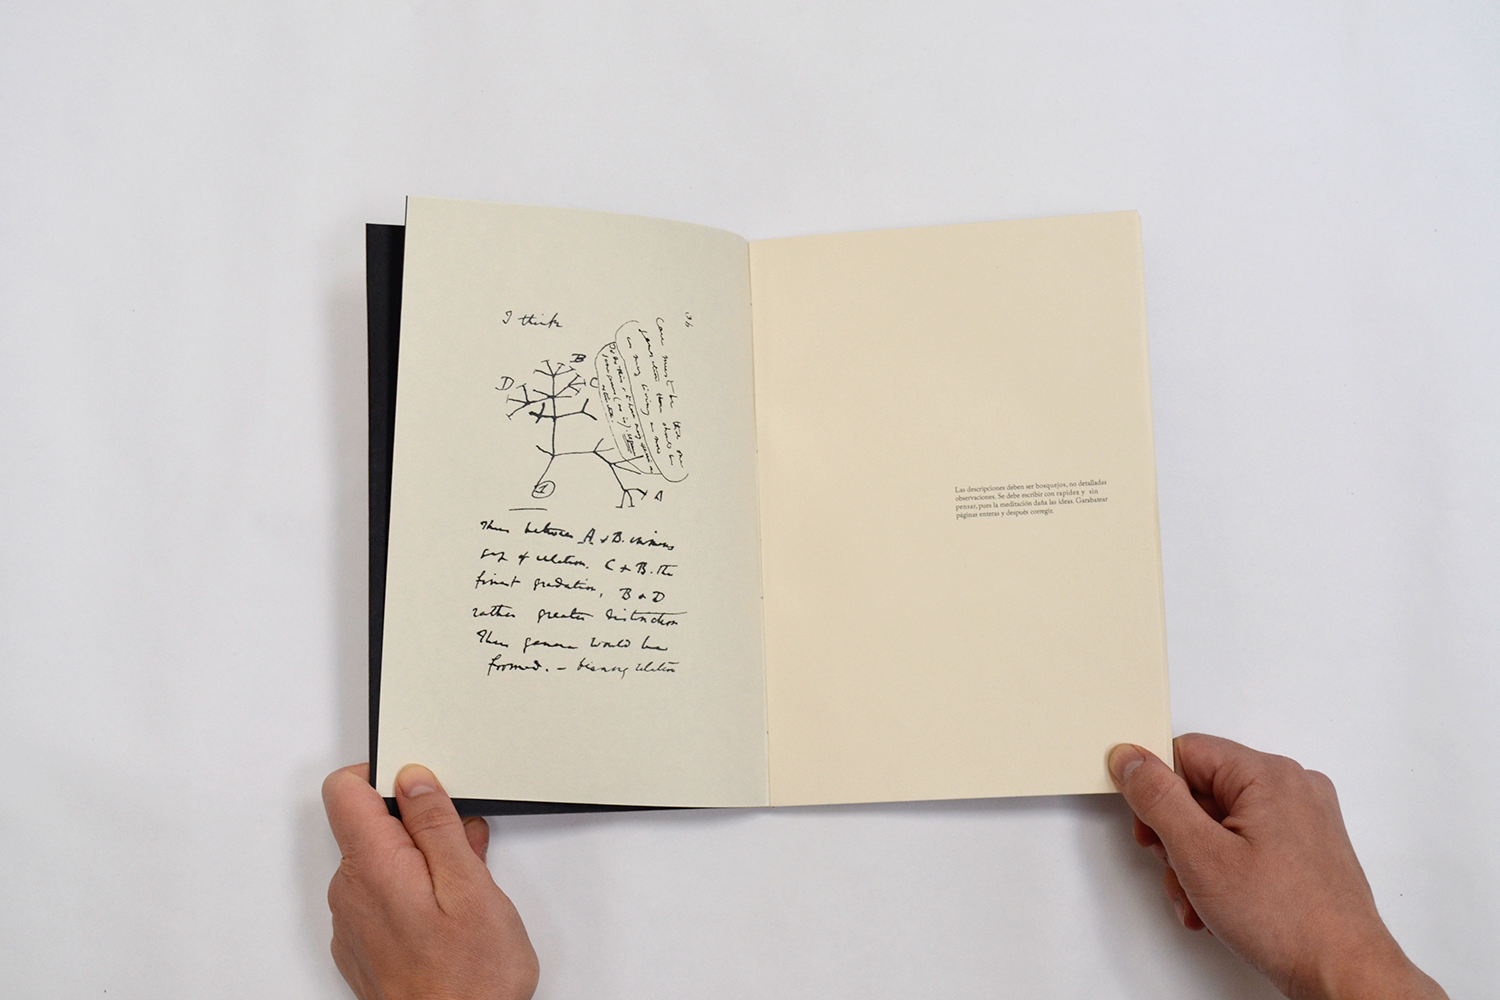 I think
36
Case must be that one
generation then should be
as many living as now
To do this & to have many species in
same genus (as is). requires
extinction.
B
D
C
A
1
Thus between A & B. immens
gap of relation. C & B. the
finest gradation, B & D
rather greater distinction
Thus genera would be
formed. — bearing relation
Las descripciones deben ser bosquejos, no detalladas
observaciones. Se debe escribir con rapidez y sin
pensar, pues la meditación daña las ideas. Garabatear
páginas enteras y después corregir.